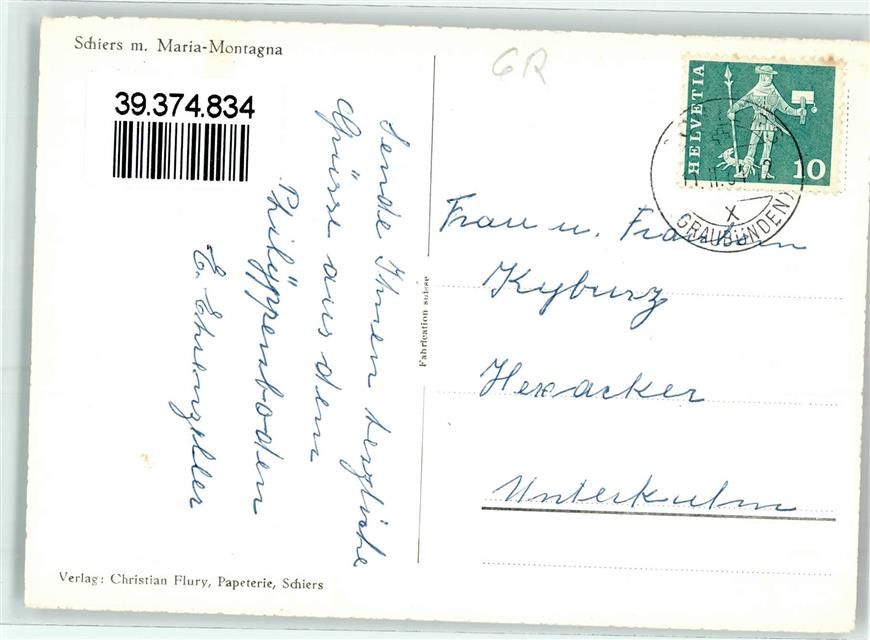 Schiers m. Maria-Montagna
39.374.834
GR
HELVETIA
10
GRAUBÜNDEN
Sende Ihnen herzliche
Grüsse aus dem
Philippenboden
E. Ehrenzeller
Fabrication suisse
Frau u.
Kyburz
Hexacker
Unterkulm
Verlag: Christian Flury, Papeterie, Schiers